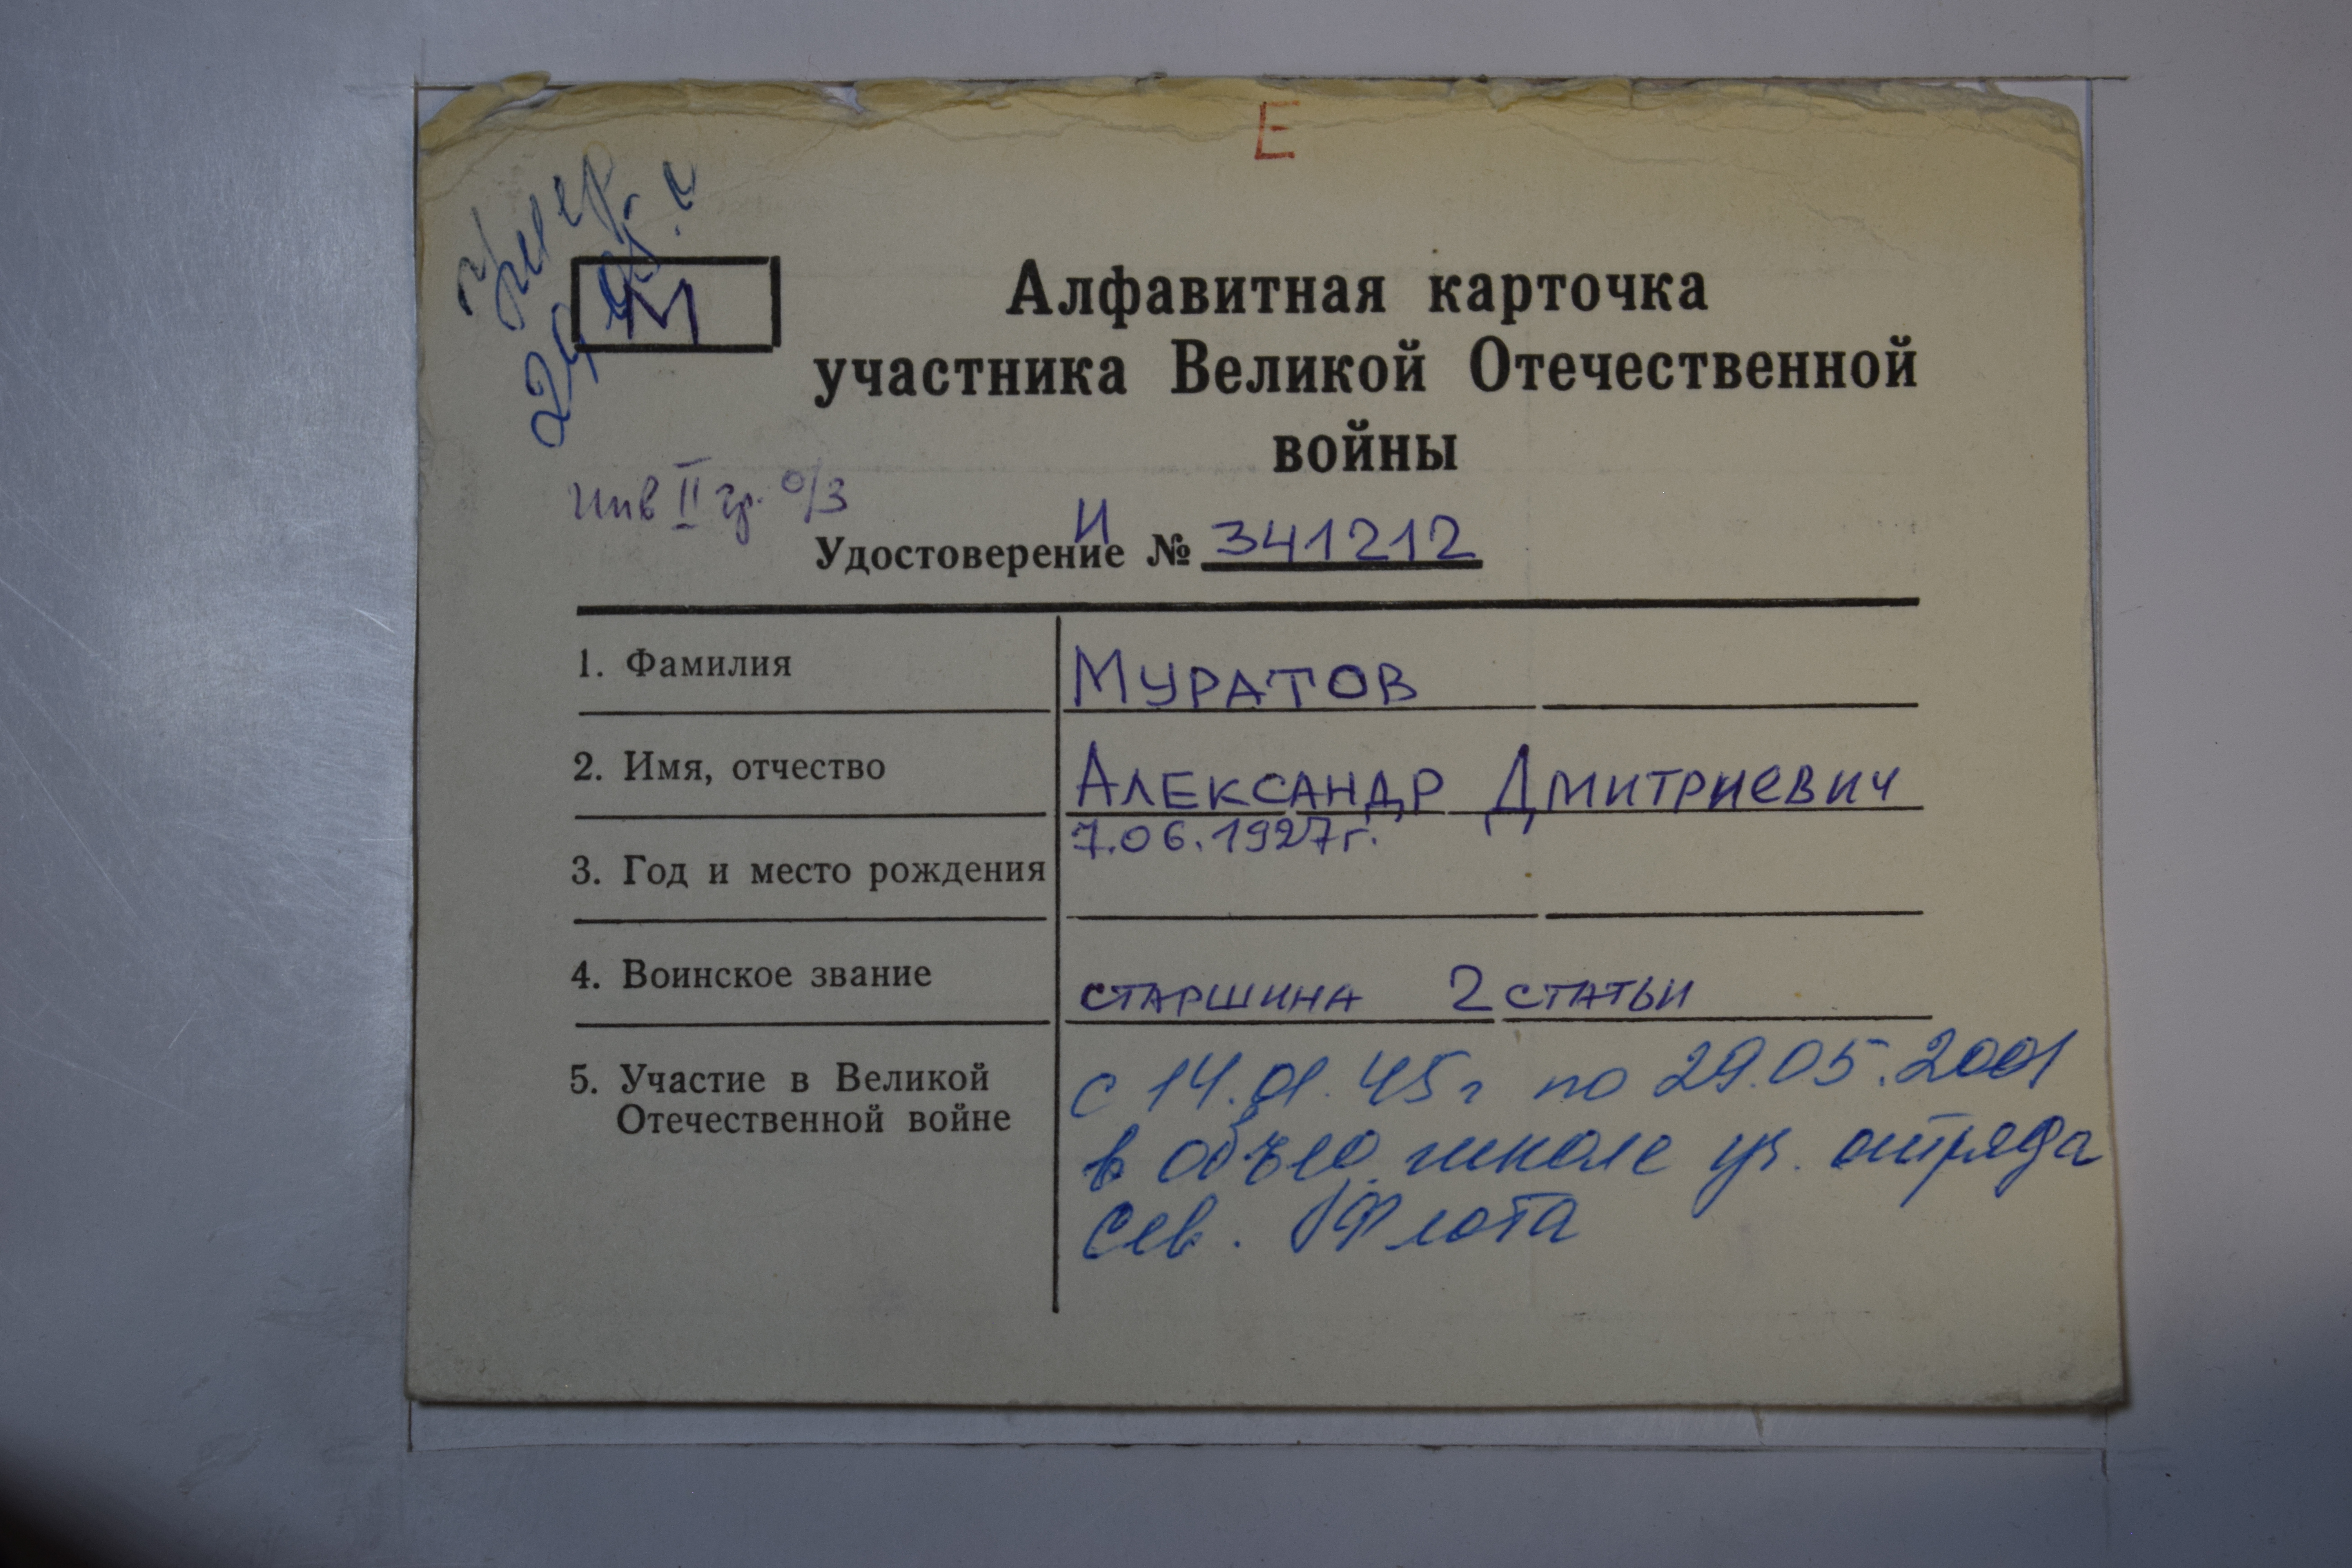 Е
М
Алфавитная карточка
участника Великой Отечественной
войны
инв II гр. о/з
Удостоверение И № 341212
1. Фамилия МУРАТОВ
2. Имя, отчество АЛЕКСАНДР ДМИТРИЕВИЧ
3. Год и место рождения 7.06.1927г.
4. Воинское звание СТАРШИНА 2 СТАТЬИ
5. Участие в Великой с 14.01.45г по 29.05.2001
Отечественной войне в объед. школе уч. отряда
Сев. Флота